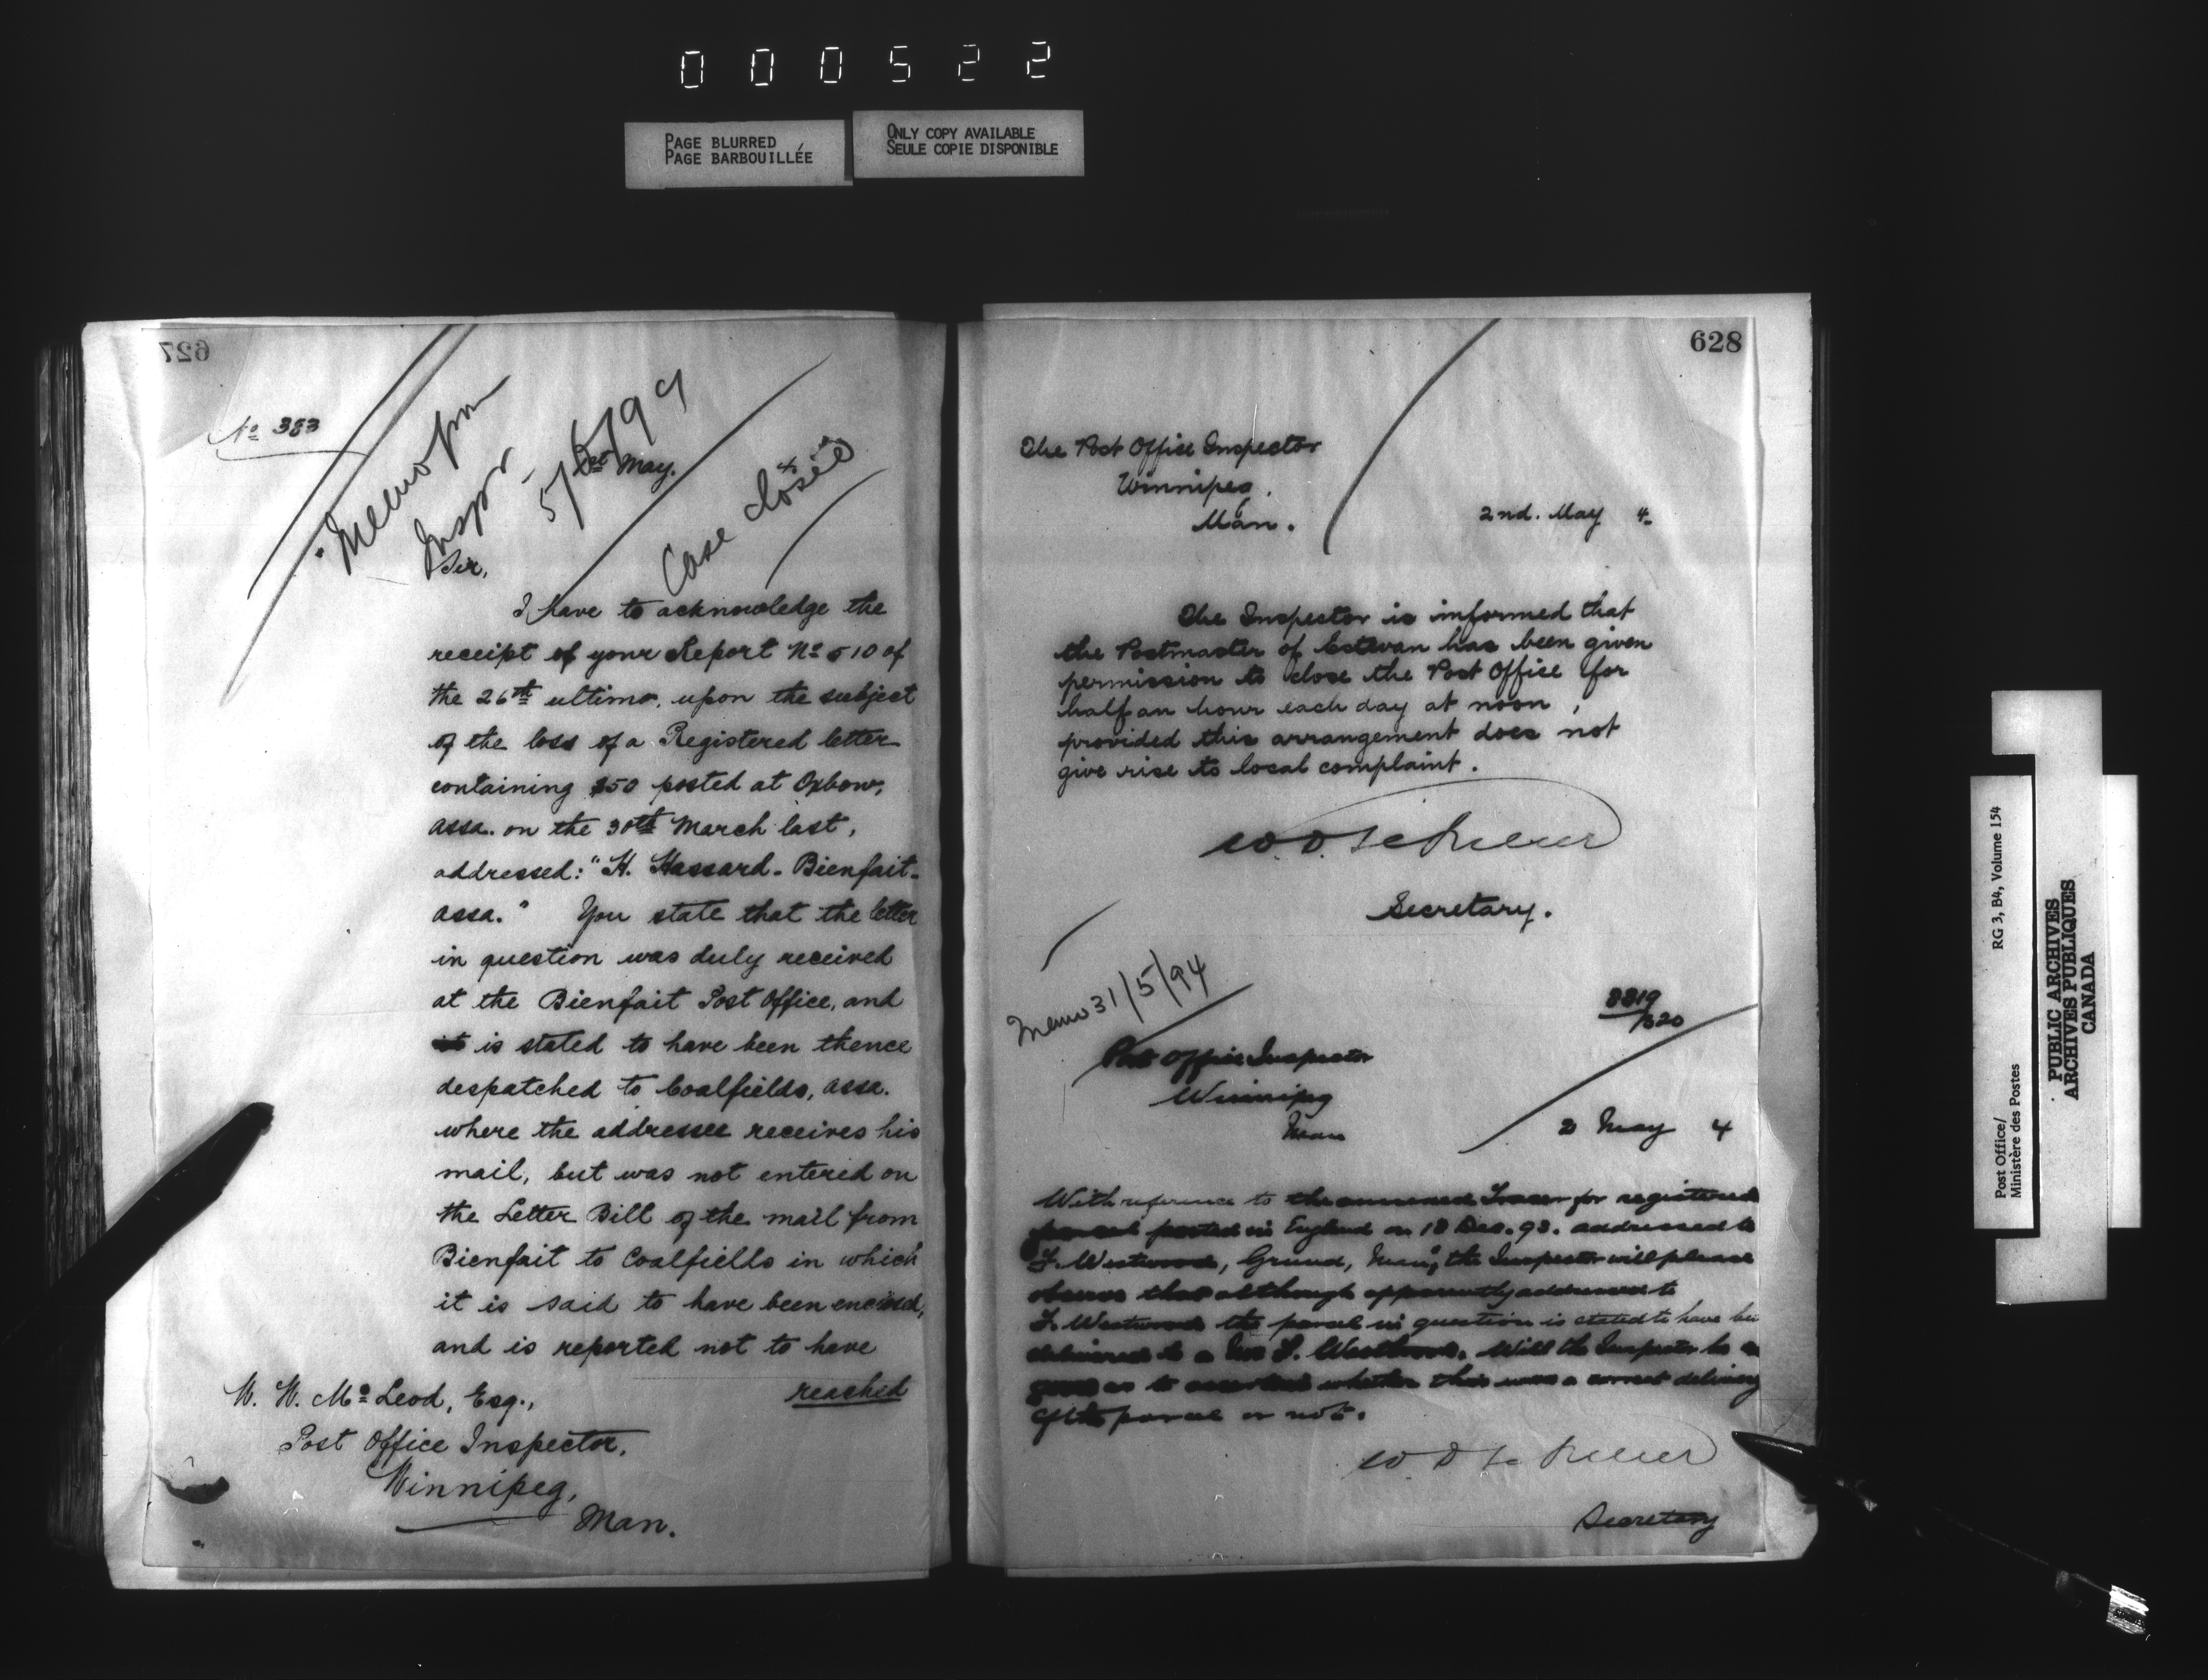 000522
PAGE BLURRED
PAGE BARBOUILLÉE
ONLY COPY AVAILABLE
SEULE COPIE DISPONIBLE
627
No 383
Memo from
Inspr
5/6/94
1st May. 4
Case closed
Sir,
I have to acknowledge the
receipt of your Report No 510 of
the 26th ultimo, upon the subject
of the loss of a Registered letter
containing $50 posted at Oxbow,
Assa. on the 30th March last,
addressed: "H. Hassard - Bienfait -
Assa." You state that the letter
in question was duly received
at the Bienfait Post Office, and
is stated to have been thence
despatched to Coalfields, Assa.
where the addressee receives his
mail, but was not entered on
the Letter Bill of the mail from
Bienfait to Coalfields in which
it is said to have been enclosed,
and is reported not to have
reached
W. W. McLeod, Esq.,
Post Office Inspector,
Winnipeg,
Man.
628
The Post Office Inspector
Winnipeg,
Man.
2nd. May 4.
The Inspector is informed that
the Postmaster of Estevan has been given
permission to close the Post Office for
half an hour each day at noon,
provided this arrangement does not
give rise to local complaint.
Secretary.
Memo 31/5/94
Post Office Inspector
Winnipeg
Man
2 May 4
With reference to the annexed Tracer for registered
parcel posted in England on 18 Dec. 93. addressed to
F. Westwood, Grund, Man", the Inspector will please
observe that although apparently addressed to
F. Westwood the parcel in question is stated to have been
delivered to a Will the Inspector be so
good as to ascertain whether this was a correct delivery
of the parcel or not.
Secretary
Post Office/
Ministère des Postes
RG 3, B4, Volume 154
PUBLIC ARCHIVES
ARCHIVES PUBLIQUES
CANADA